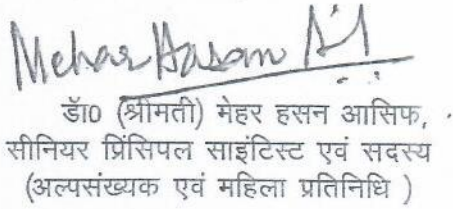 Mehar Hasan
डॅा0 (श्रीमती) मेहर हसन आसिफ,
सीनियर प्रिंसिपल साइंटिस्ट एवं सदस्य
(अल्पसंख्यक एवं महिला प्रतिनिधि )